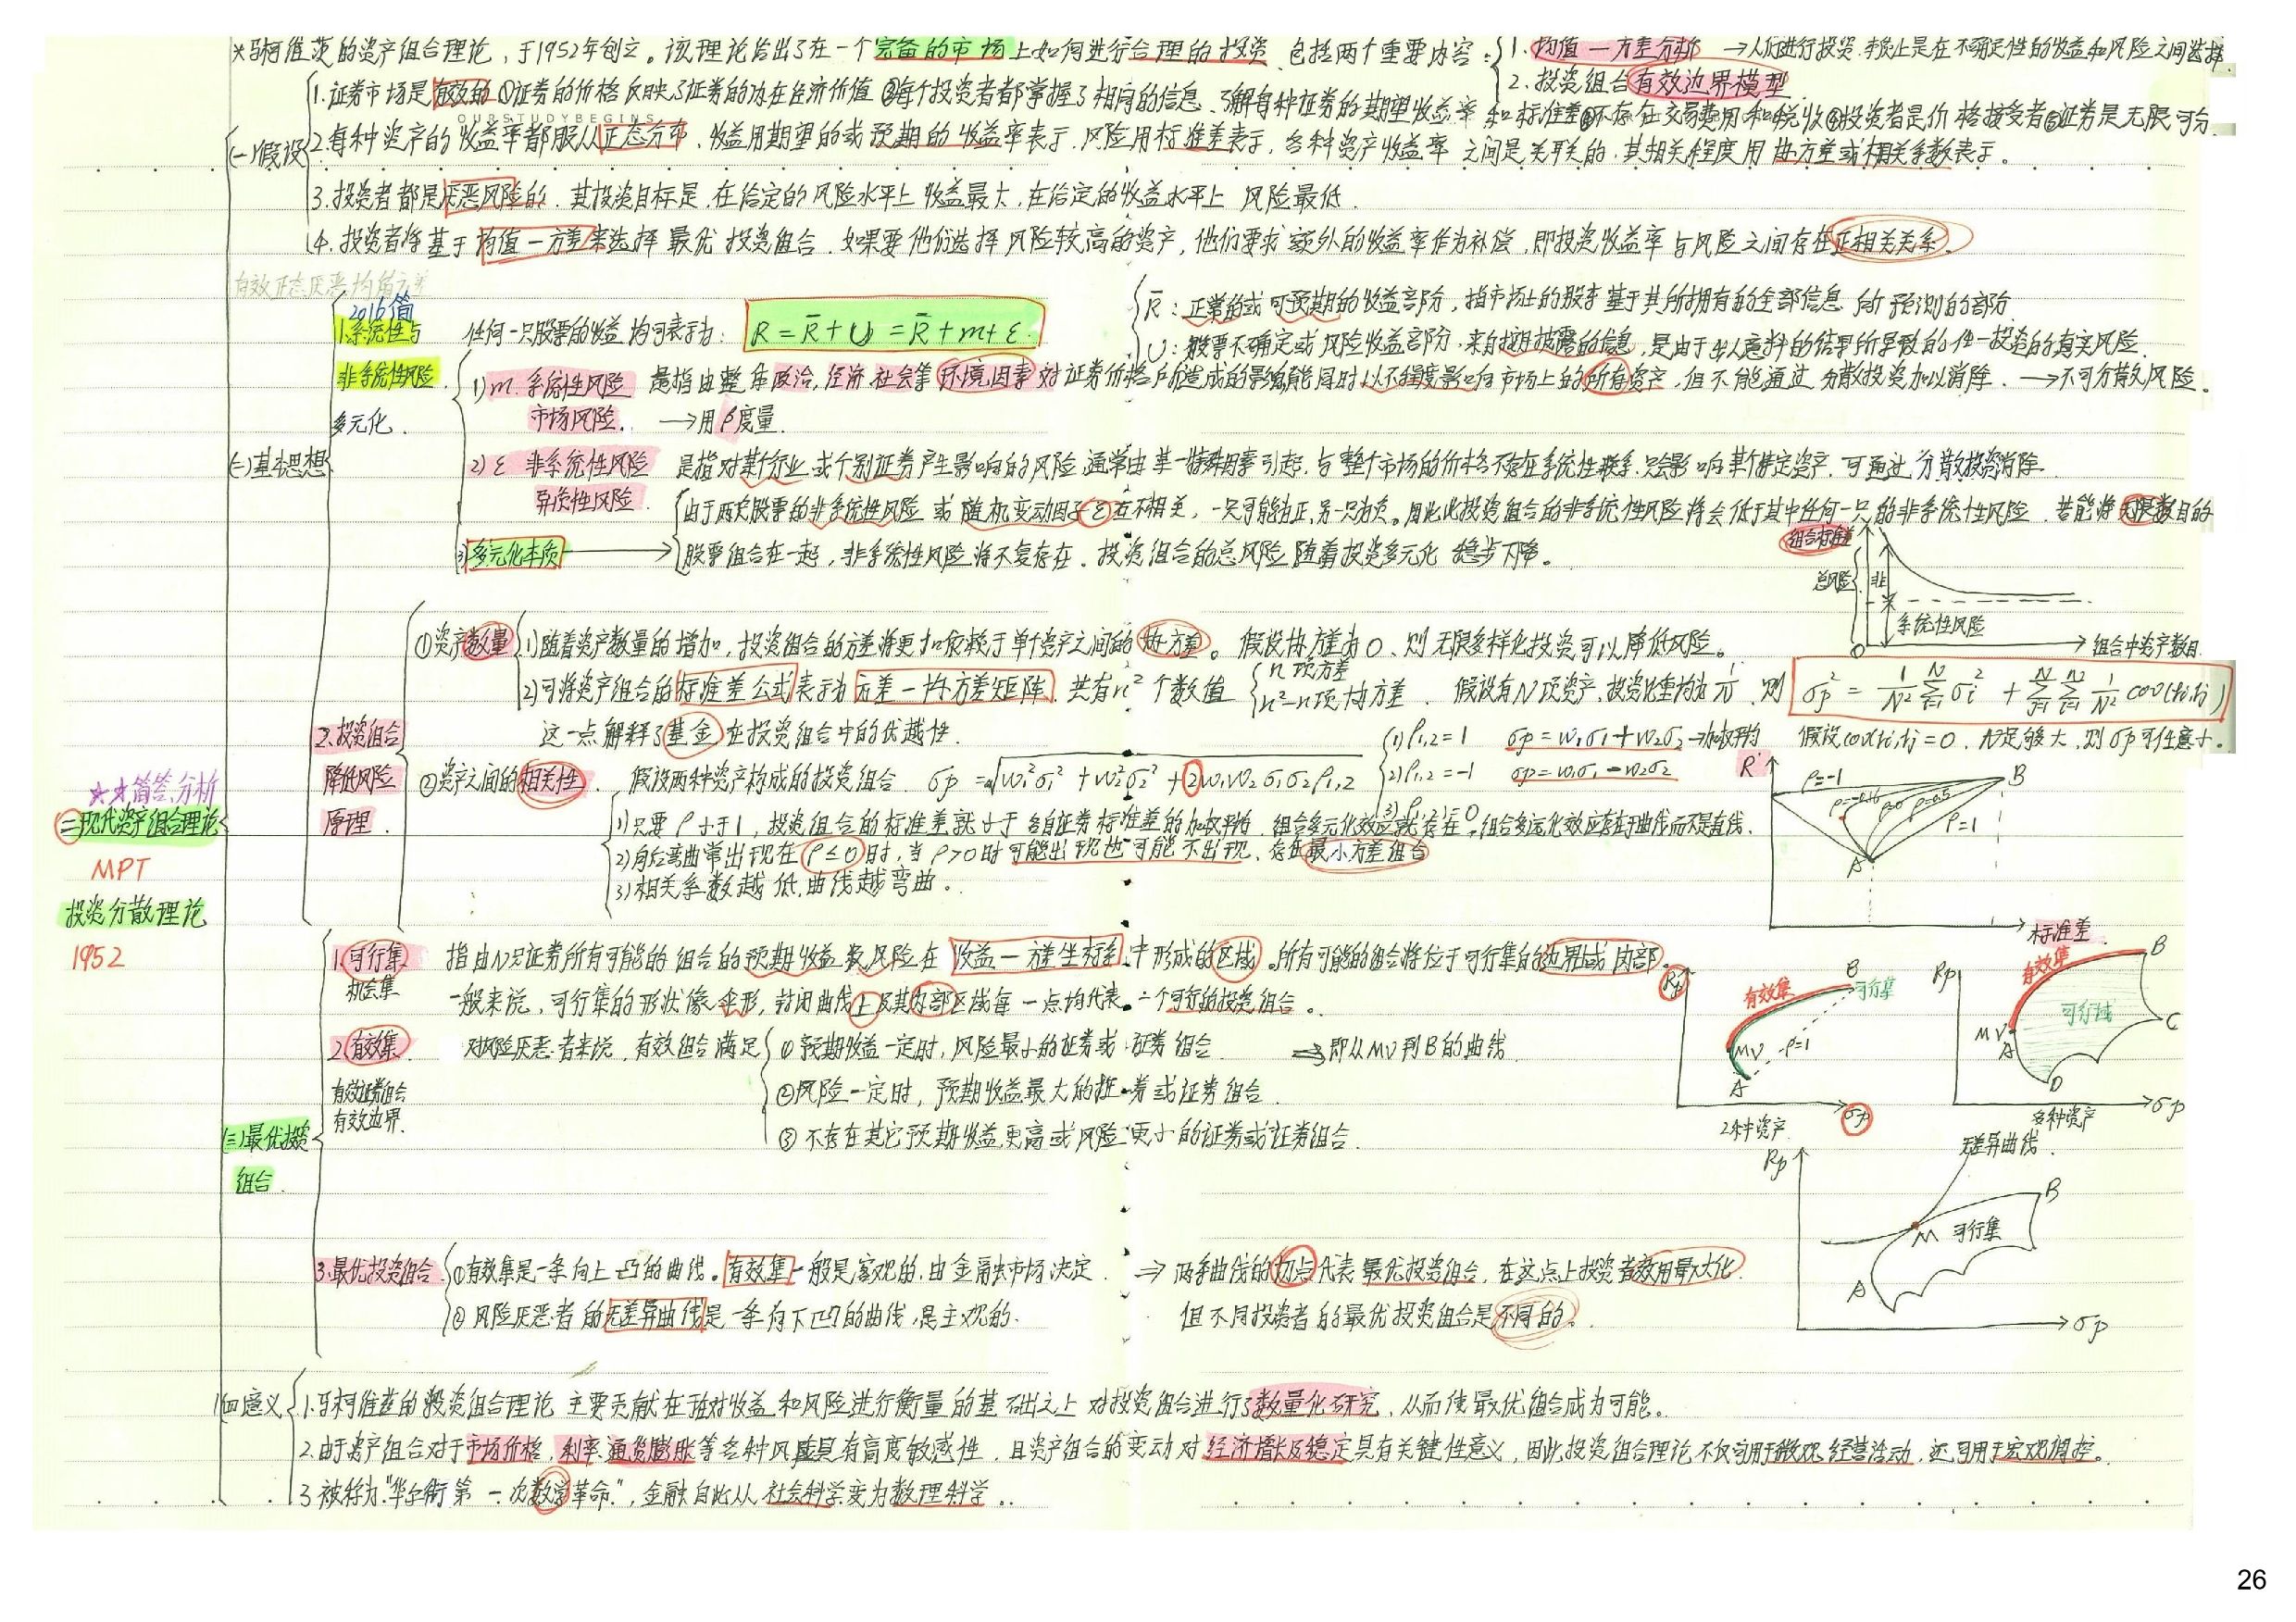 *马柯维茨的资产组合理论，于1952年创立。该理论给出了在一个完备的市场上如何进行合理的投资 包括两个重要内容：
1. 均值一方差分析 →人们进行投资 本质上是在不确定性的收益和风险之间选择.
2. 投资组合有效边界模型
(一)假设
1.证券市场是有效的 ①证券的价格反映了证券的内在经济价值 ②每个投资者都掌握了相同的信息、了解每种证券的期望收益率和标准差 ③不存在交易费用和税收 ④投资者是价格接受者 ⑤证券是无限可分.
OURSTUDYBEGINS
2.每种资产的收益率都服从正态分布，收益用期望的或预期的收益率表示，风险用标准差表示，各种资产收益率之间是关联的，其相关程度用协方差或相关系数表示。
3.投资者都是厌恶风险的，其投资目标是，在给定的风险水平上收益最大，在给定的收益水平上 风险最低.
4.投资者将基于均值一方差来选择最优投资组合，如果要他们选择风险较高的资产，他们要求额外的收益率作为补偿，即投资收益率与风险之间存在正相关关系。
有效正态厌恶均值方差
(二)基本思想
2016简
1.系统性与
非系统性风险
多元化.
任何一只股票的收益均可表示为: R = R̄ + U = R̄ + m + ε.
R̄：正常的或可预期的收益部分，指市场上的股东基于其所拥有的全部信息所预测的部分.
U：股票不确定或风险收益部分，来自披露的信息，是由于出人意料的结果所导致的任一投资的真实风险.
1) m 系统性风险 是指由整体政治,经济,社会等环境因素对证券价格所造成的影响能同时以不同程度影响市场上的所有资产，但不能通过分散投资加以消除. →不可分散风险.
市场风险. →用β度量.
2) ε 非系统性风险 是指对某个行业或个别证券产生影响的风险 通常由某一特殊因素引起，与整个市场的价格不存在系统性联系，只会影响某个特定资产，可通过分散投资消除.
异质性风险.
3)多元化本质 →
由于两只股票的非系统性风险或随机变动因子ε互不相关，一只可能为正，另一只为负。因此此投资组合的非系统性风险将会低于其中任何一只的非系统性风险，若能将无限数目的
股票组合在一起，非系统性风险将不复存在，投资组合的总风险随着投资多元化稳步下降。
组合标准差
总风险
非
系统性风险
O
组合中资产数目
2.投资组合
降低风险
原理.
①资产数量
1)随着资产数量的增加，投资组合的方差将更加依赖于单个资产之间的协方差。假设协方差为0，则无限多样化投资可以降低风险。
2)可将资产组合的标准差公式表示为方差一协方差矩阵，共有n²个数值 n项方差 n²-n项协方差. 假设有N项资产，投资比重均为1/N，则 σp² = 1/N² Σσi² + ΣΣ 1/N² cov(ri,rj)
这一点解释了基金在投资组合中的优越性. 假设cov(ri,rj)=0，N足够大，则σp可任意小.
②资产之间的相关性. 假设两种资产构成的投资组合 σp = √w₁²σ₁² + w₂²σ₂² + 2w₁w₂σ₁σ₂ρ1,2
(1) ρ1,2=1 σp=w₁σ₁+w₂σ₂→加权平均
(2) ρ1,2=-1 σp=w₁σ₁-w₂σ₂
(3) ρ1,2=0
1)只要ρ小于1，投资组合的标准差就小于各自证券标准差的加权平均，组合多元化效应就存在，组合多元化效应存在于曲线而不是直线.
2)向后弯曲常出现在ρ≤0时，当ρ>0时可能出现也可能不出现，存在最小方差组合
3)相关系数越低，曲线越弯曲。
R
ρ=-1
B
ρ=0
ρ=0.5
ρ=1
A
标准差
★★简答,分析
(三)现代资产组合理论
MPT
投资分散理论
1952
(三)最优投资
组合.
1.可行集
机会集
指由N只证券所有可能的组合的预期收益及风险在收益一方差坐标系中形成的区域。所有可能的组合将位于可行集的边界或内部.
一般来说，可行集的形状像伞形，封闭曲线上及其内部区域每一点均代表一个可行的投资组合。
2.有效集.
有效证券组合
有效边界.
对风险厌恶者来说，有效组合满足
① 预期收益一定时，风险最小的证券或证券组合 ⇒即从MV到B的曲线
②风险一定时，预期收益最大的证券或证券组合.
③ 不存在其它预期收益更高或风险更小的证券或证券组合.
Rp
有效集
B
可行集
MV
ρ=1
A
σp
2种资产
Rp
有效集
B
可行域
MV
A
C
D
σp
多种资产
3.最优投资组合
①有效集是一条向上凸的曲线。有效集一般是客观的，由金融市场决定.
② 风险厌恶者的无差异曲线是一条向下凹的曲线，是主观的.
⇒ 两条曲线的切点代表最优投资组合，在这点上投资者效用最大化.
但不同投资者的最优投资组合是不同的。
无差异曲线.
Rp
B
M
可行集
A
σp
(四)意义
1.马柯维茨的投资组合理论 主要贡献在于在对收益和风险进行衡量的基础之上 对投资组合进行了数量化研究，从而使最优组合成为可能。
2.由于资产组合对于市场价格,利率,通货膨胀等各种风险具有高度敏感性，且资产组合的变动对经济增长及稳定具有关键性意义，因此投资组合理论不仅可用于微观经营活动，还可用于宏观调控。
3.被称为"华尔街第一次数学革命"，金融自此从社会科学变为数理科学。
26